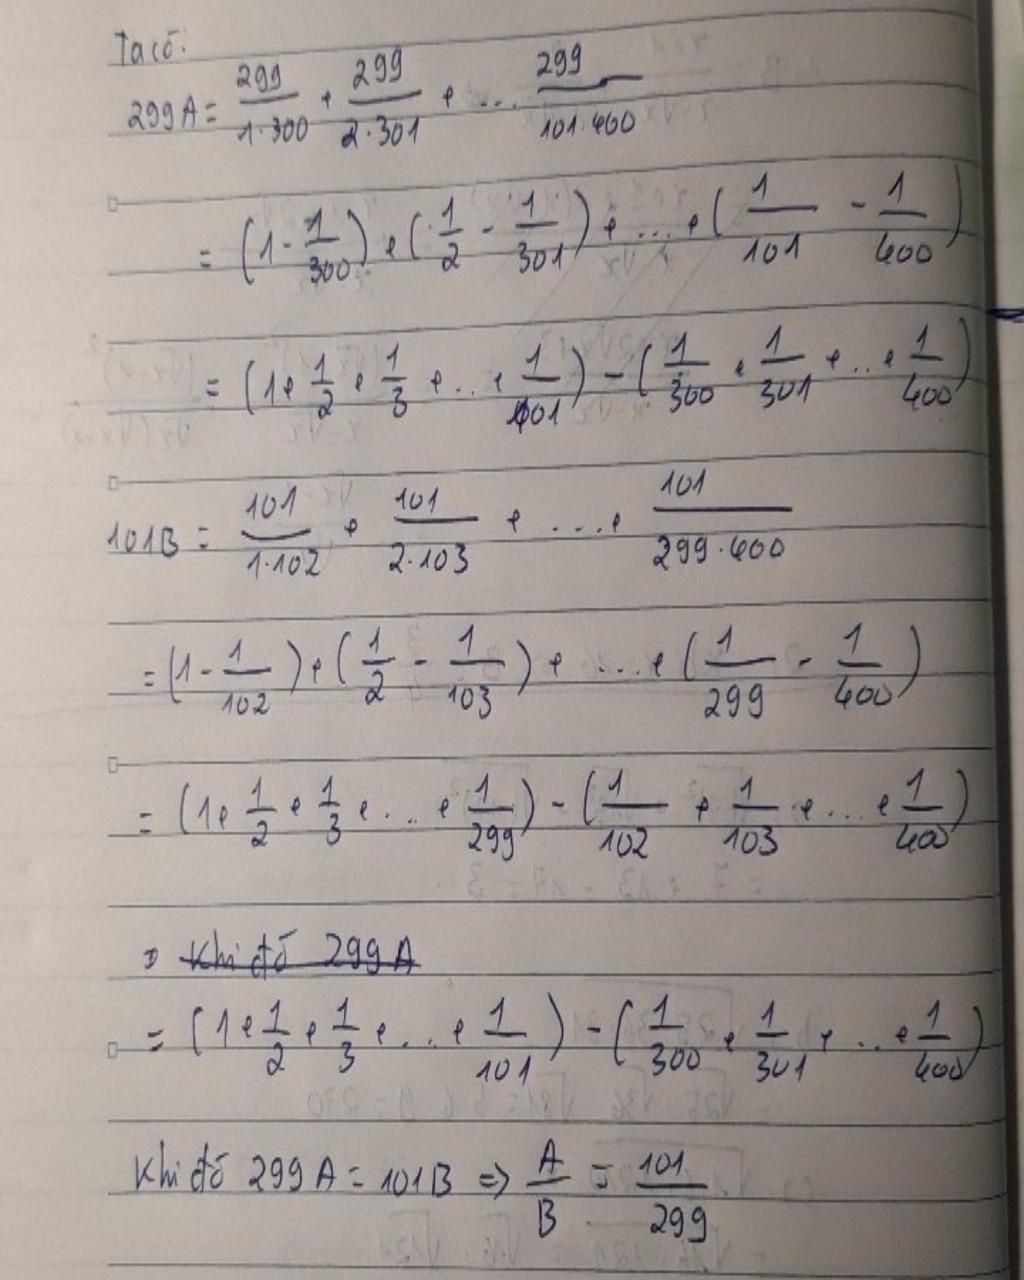 Ta có:
299A = 299/1·300 + 299/2·301 + ... 299/101·400
= (1 - 1/300) + (1/2 - 1/301) + ... + (1/101 - 1/400)
= (1 + 1/2 + 1/3 + ... + 1/101) - (1/300 + 1/301 + ... + 1/400)
101B = 101/1·102 + 101/2·103 + ... + 101/299·400
= (1 - 1/102) + (1/2 - 1/103) + ... + (1/299 - 1/400)
= (1 + 1/2 + 1/3 + ... + 1/299) - (1/102 + 1/103 + ... + 1/400)
Khi đó 299A
= (1 + 1/2 + 1/3 + ... + 1/101) - (1/300 + 1/301 + ... + 1/400)
Khi đó 299A = 101B => A/B = 101/299